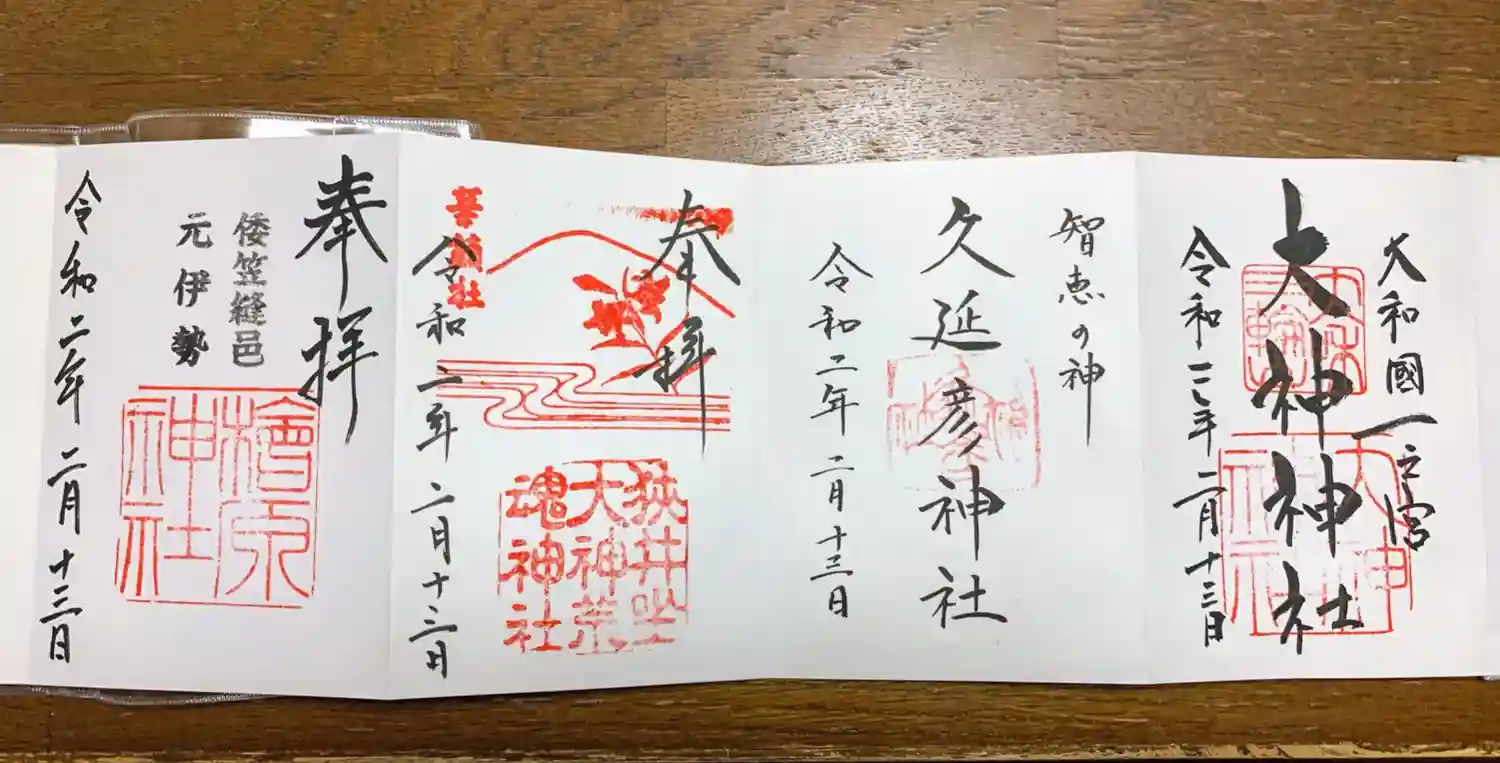 大和國一之宮
三輪
大神神社
大神神社
令和二年二月十三日
智恵の神
久延彦神社
令和二年二月十三日
奉拝
狭井坐
大神荒
魂神社
令和二年二月十三日
奉拝
倭笠縫邑
元伊勢
檜原
神社
令和二年二月十三日